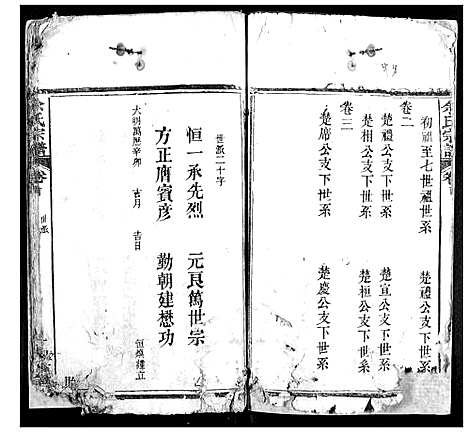 余氏宗譜
卷首
卷二
初祖至七世祖世系　楚禮公支下世系
楚禮公支下世系　楚宣公支下世系
楚相公支下世系　楚桓公支下世系
卷三
楚席公支下世系　楚慶公支下世系
世派二十字
恒一承先烈　元良萬世宗
方正膺賓彥　勤朝建懋功
大明萬歷辛卯　吉月　吉日
氏宗譜
卷首
世派